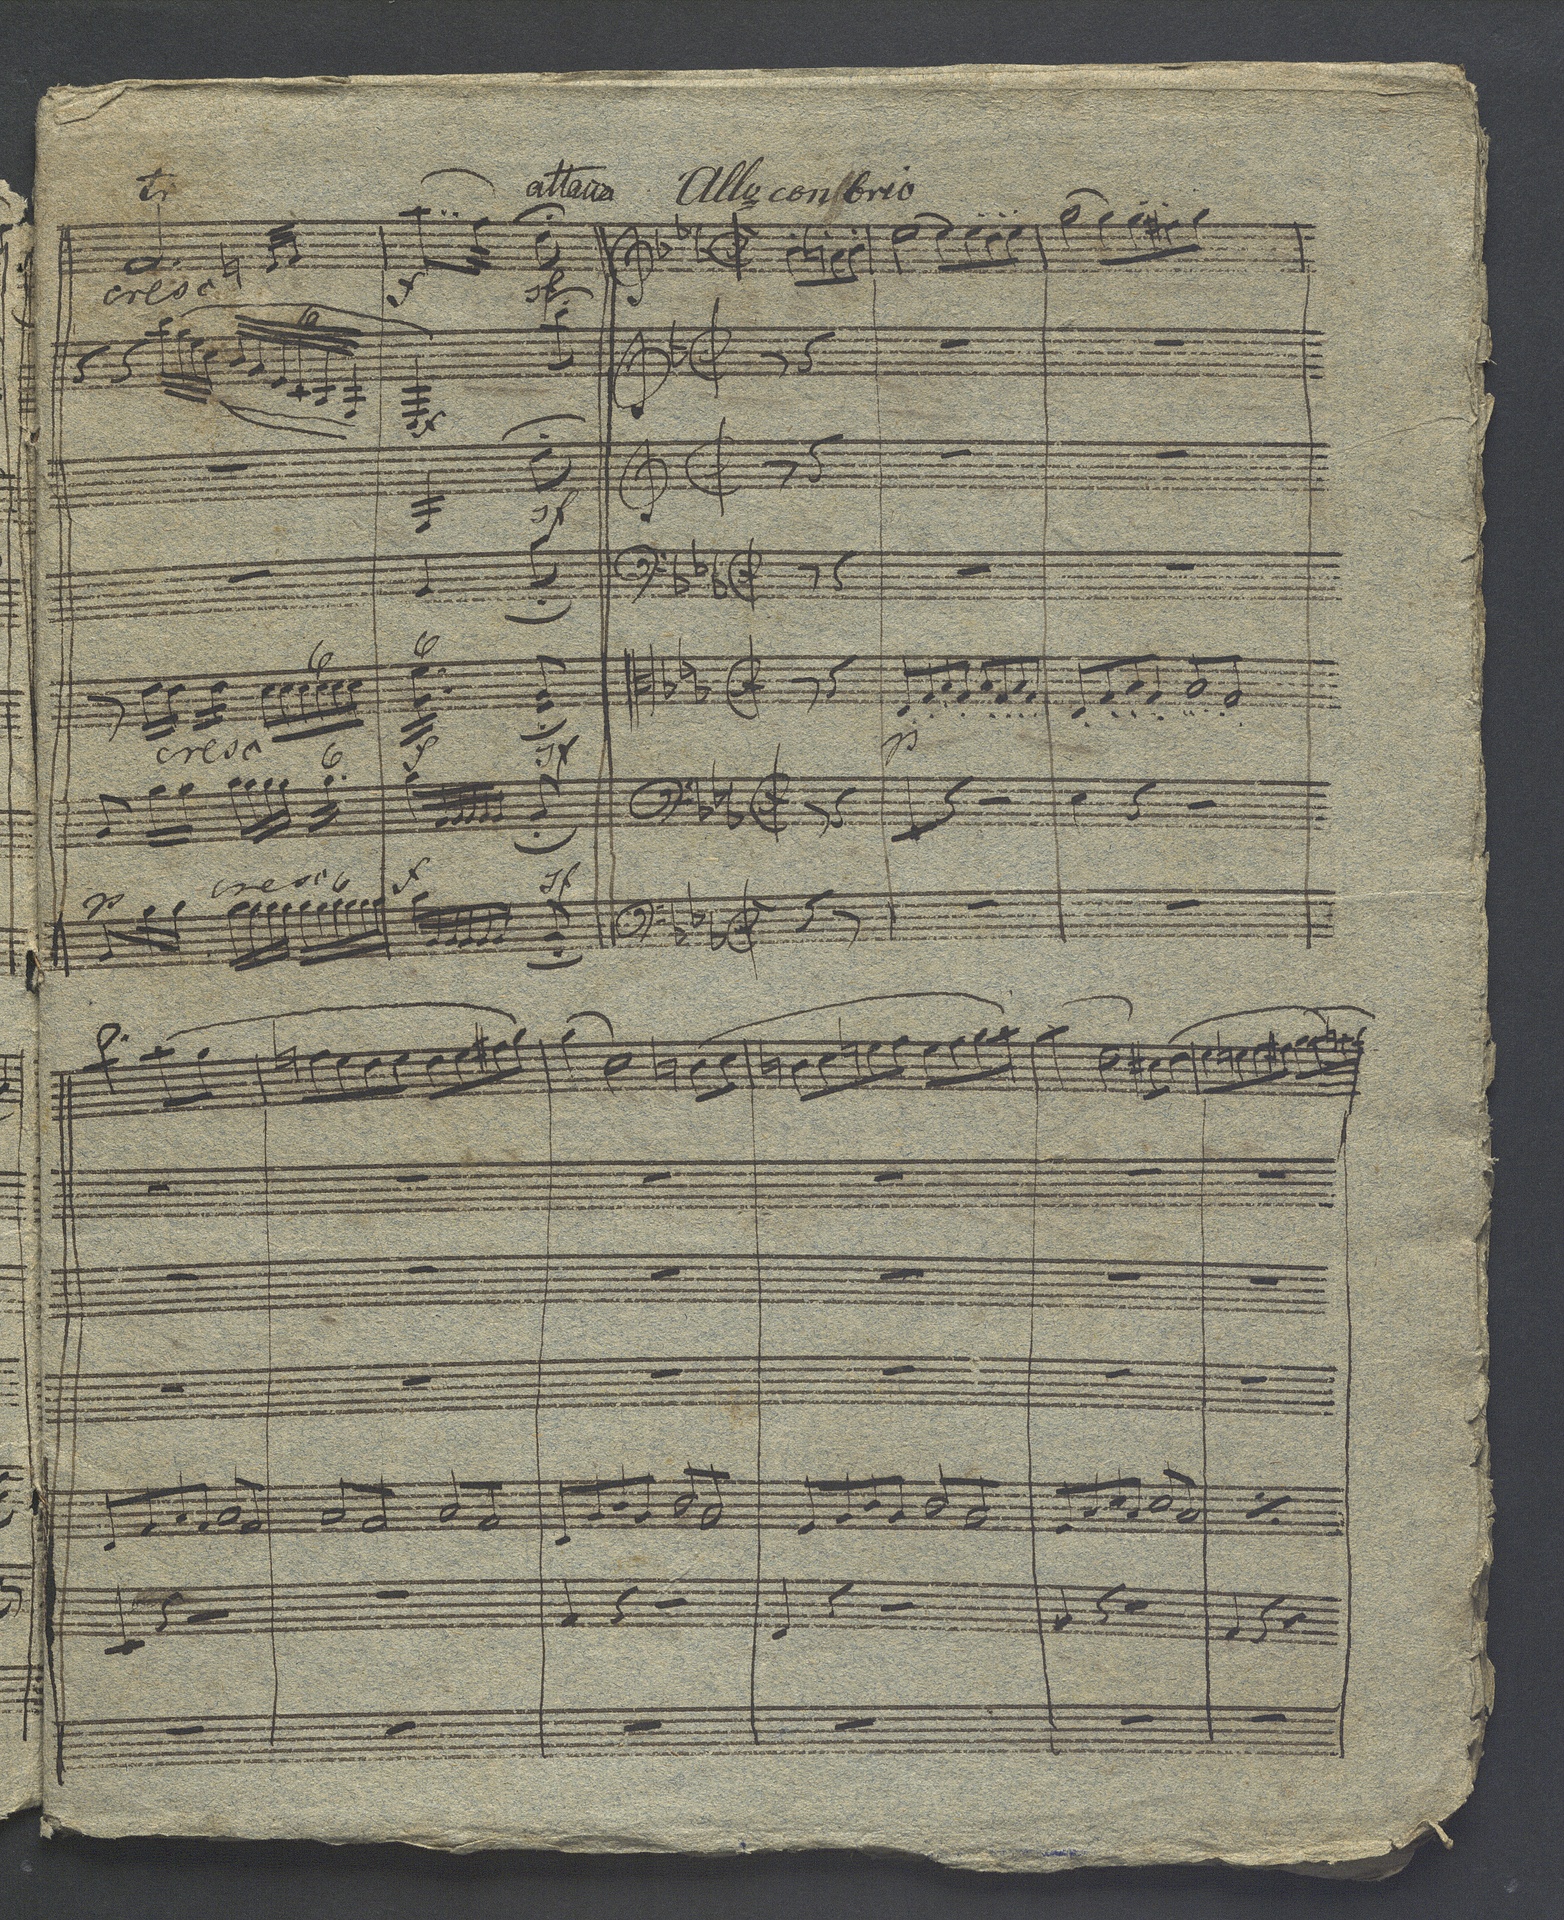 tr
attacca Allo con brio
cresc f sf
6
f
sf
6 6
cresc 6 f sf p
p cresc 6 f sf